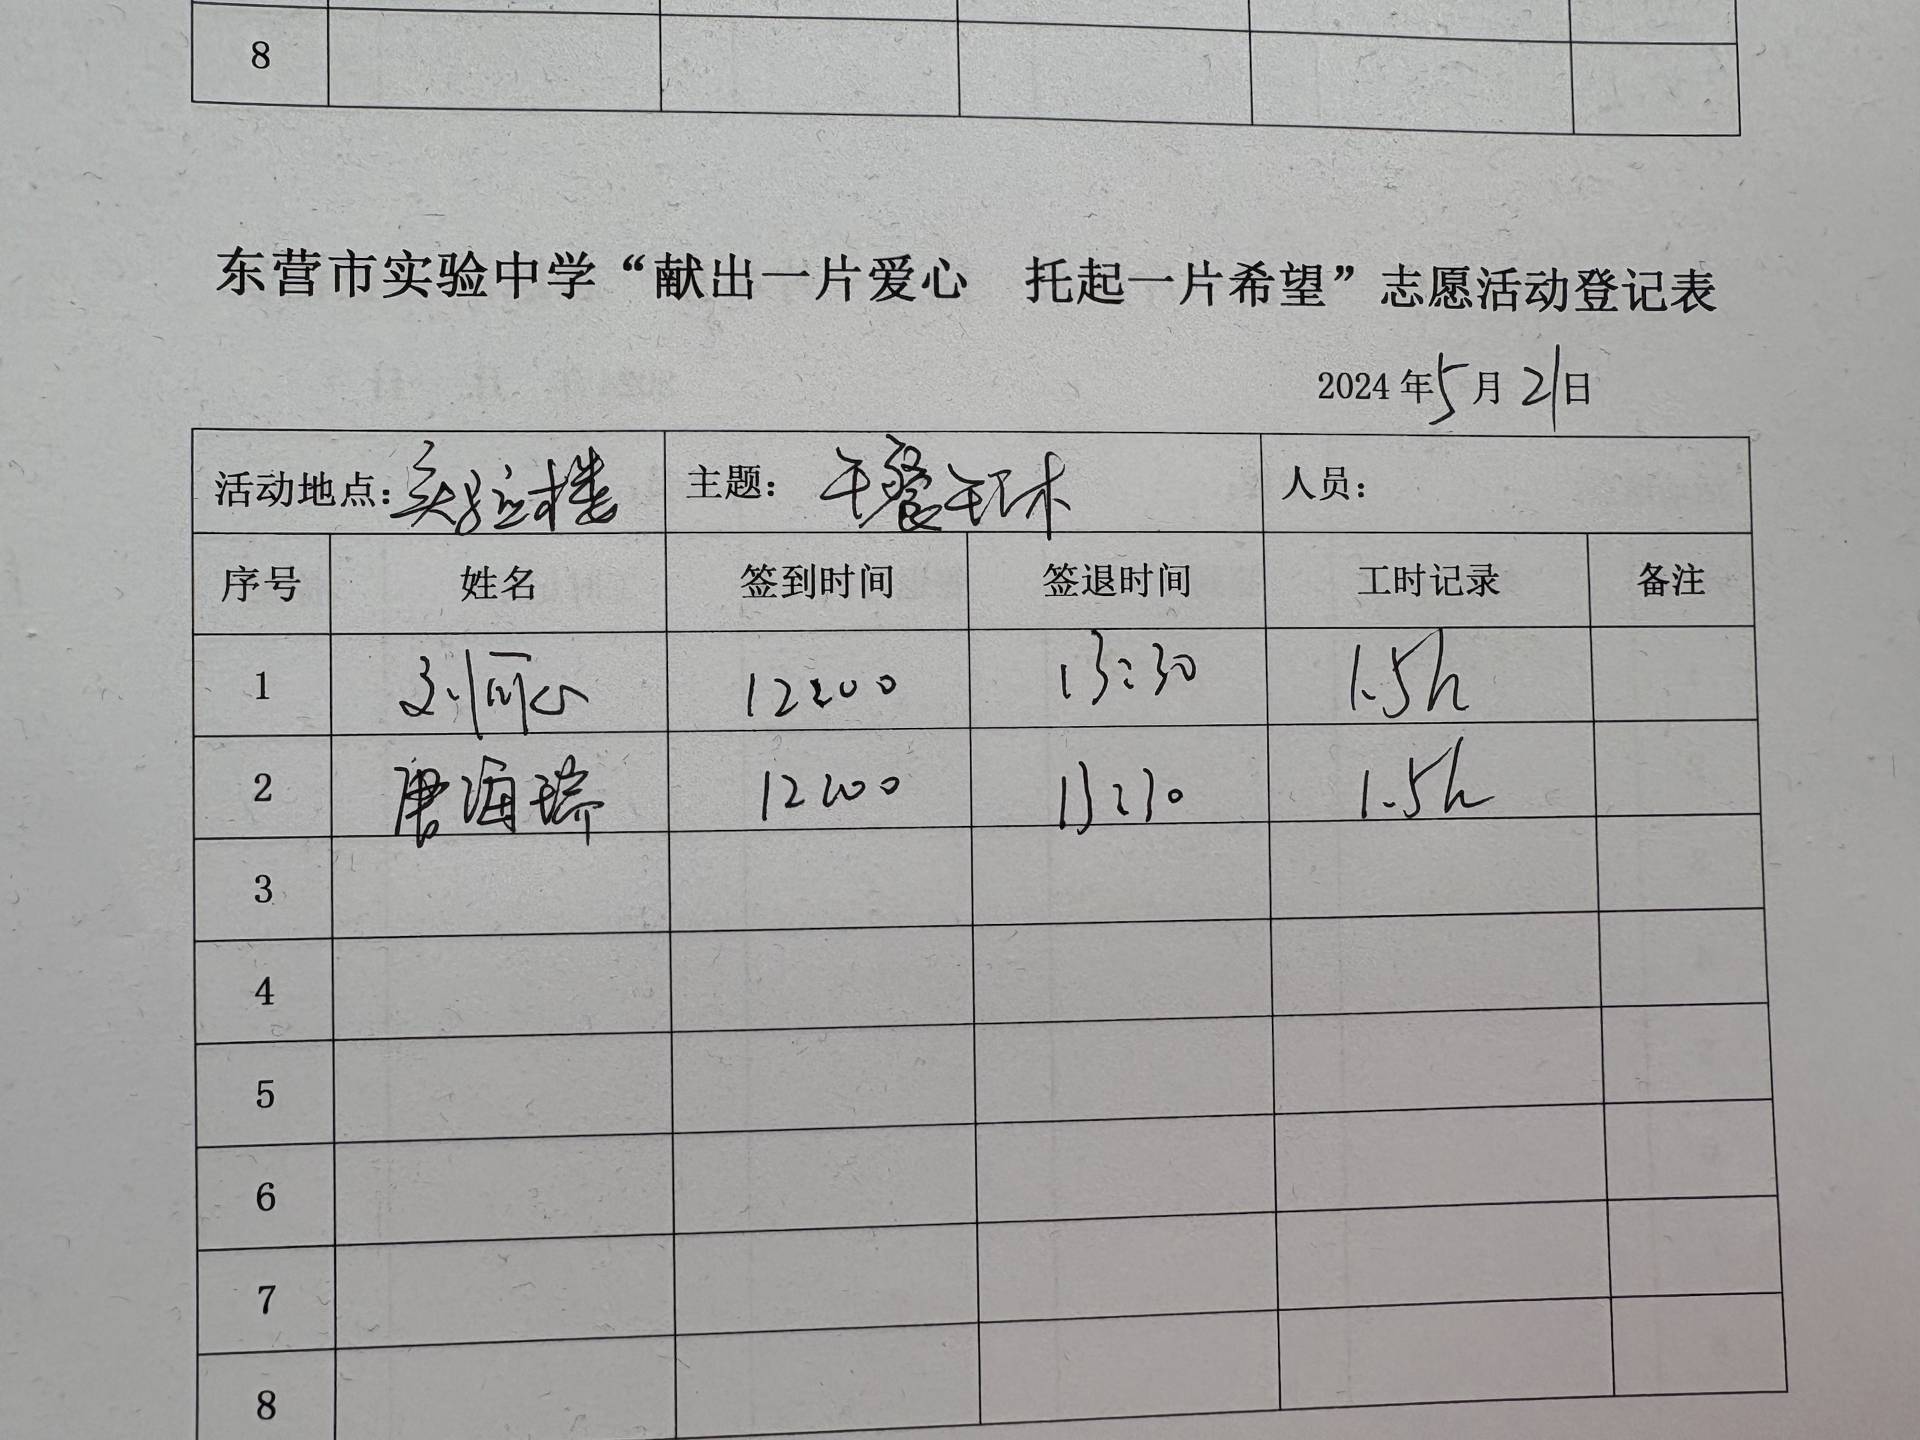 8
东营市实验中学“献出一片爱心 托起一片希望”志愿活动登记表
2024年5月21日
活动地点：实验楼 主题：午餐午休 人员：
序号 姓名 签到时间 签退时间 工时记录 备注
1 刘 心 12:00 13:30 1.5h
2 唐海瑞 12:00 13:30 1.5h
3
4
5
6
7
8